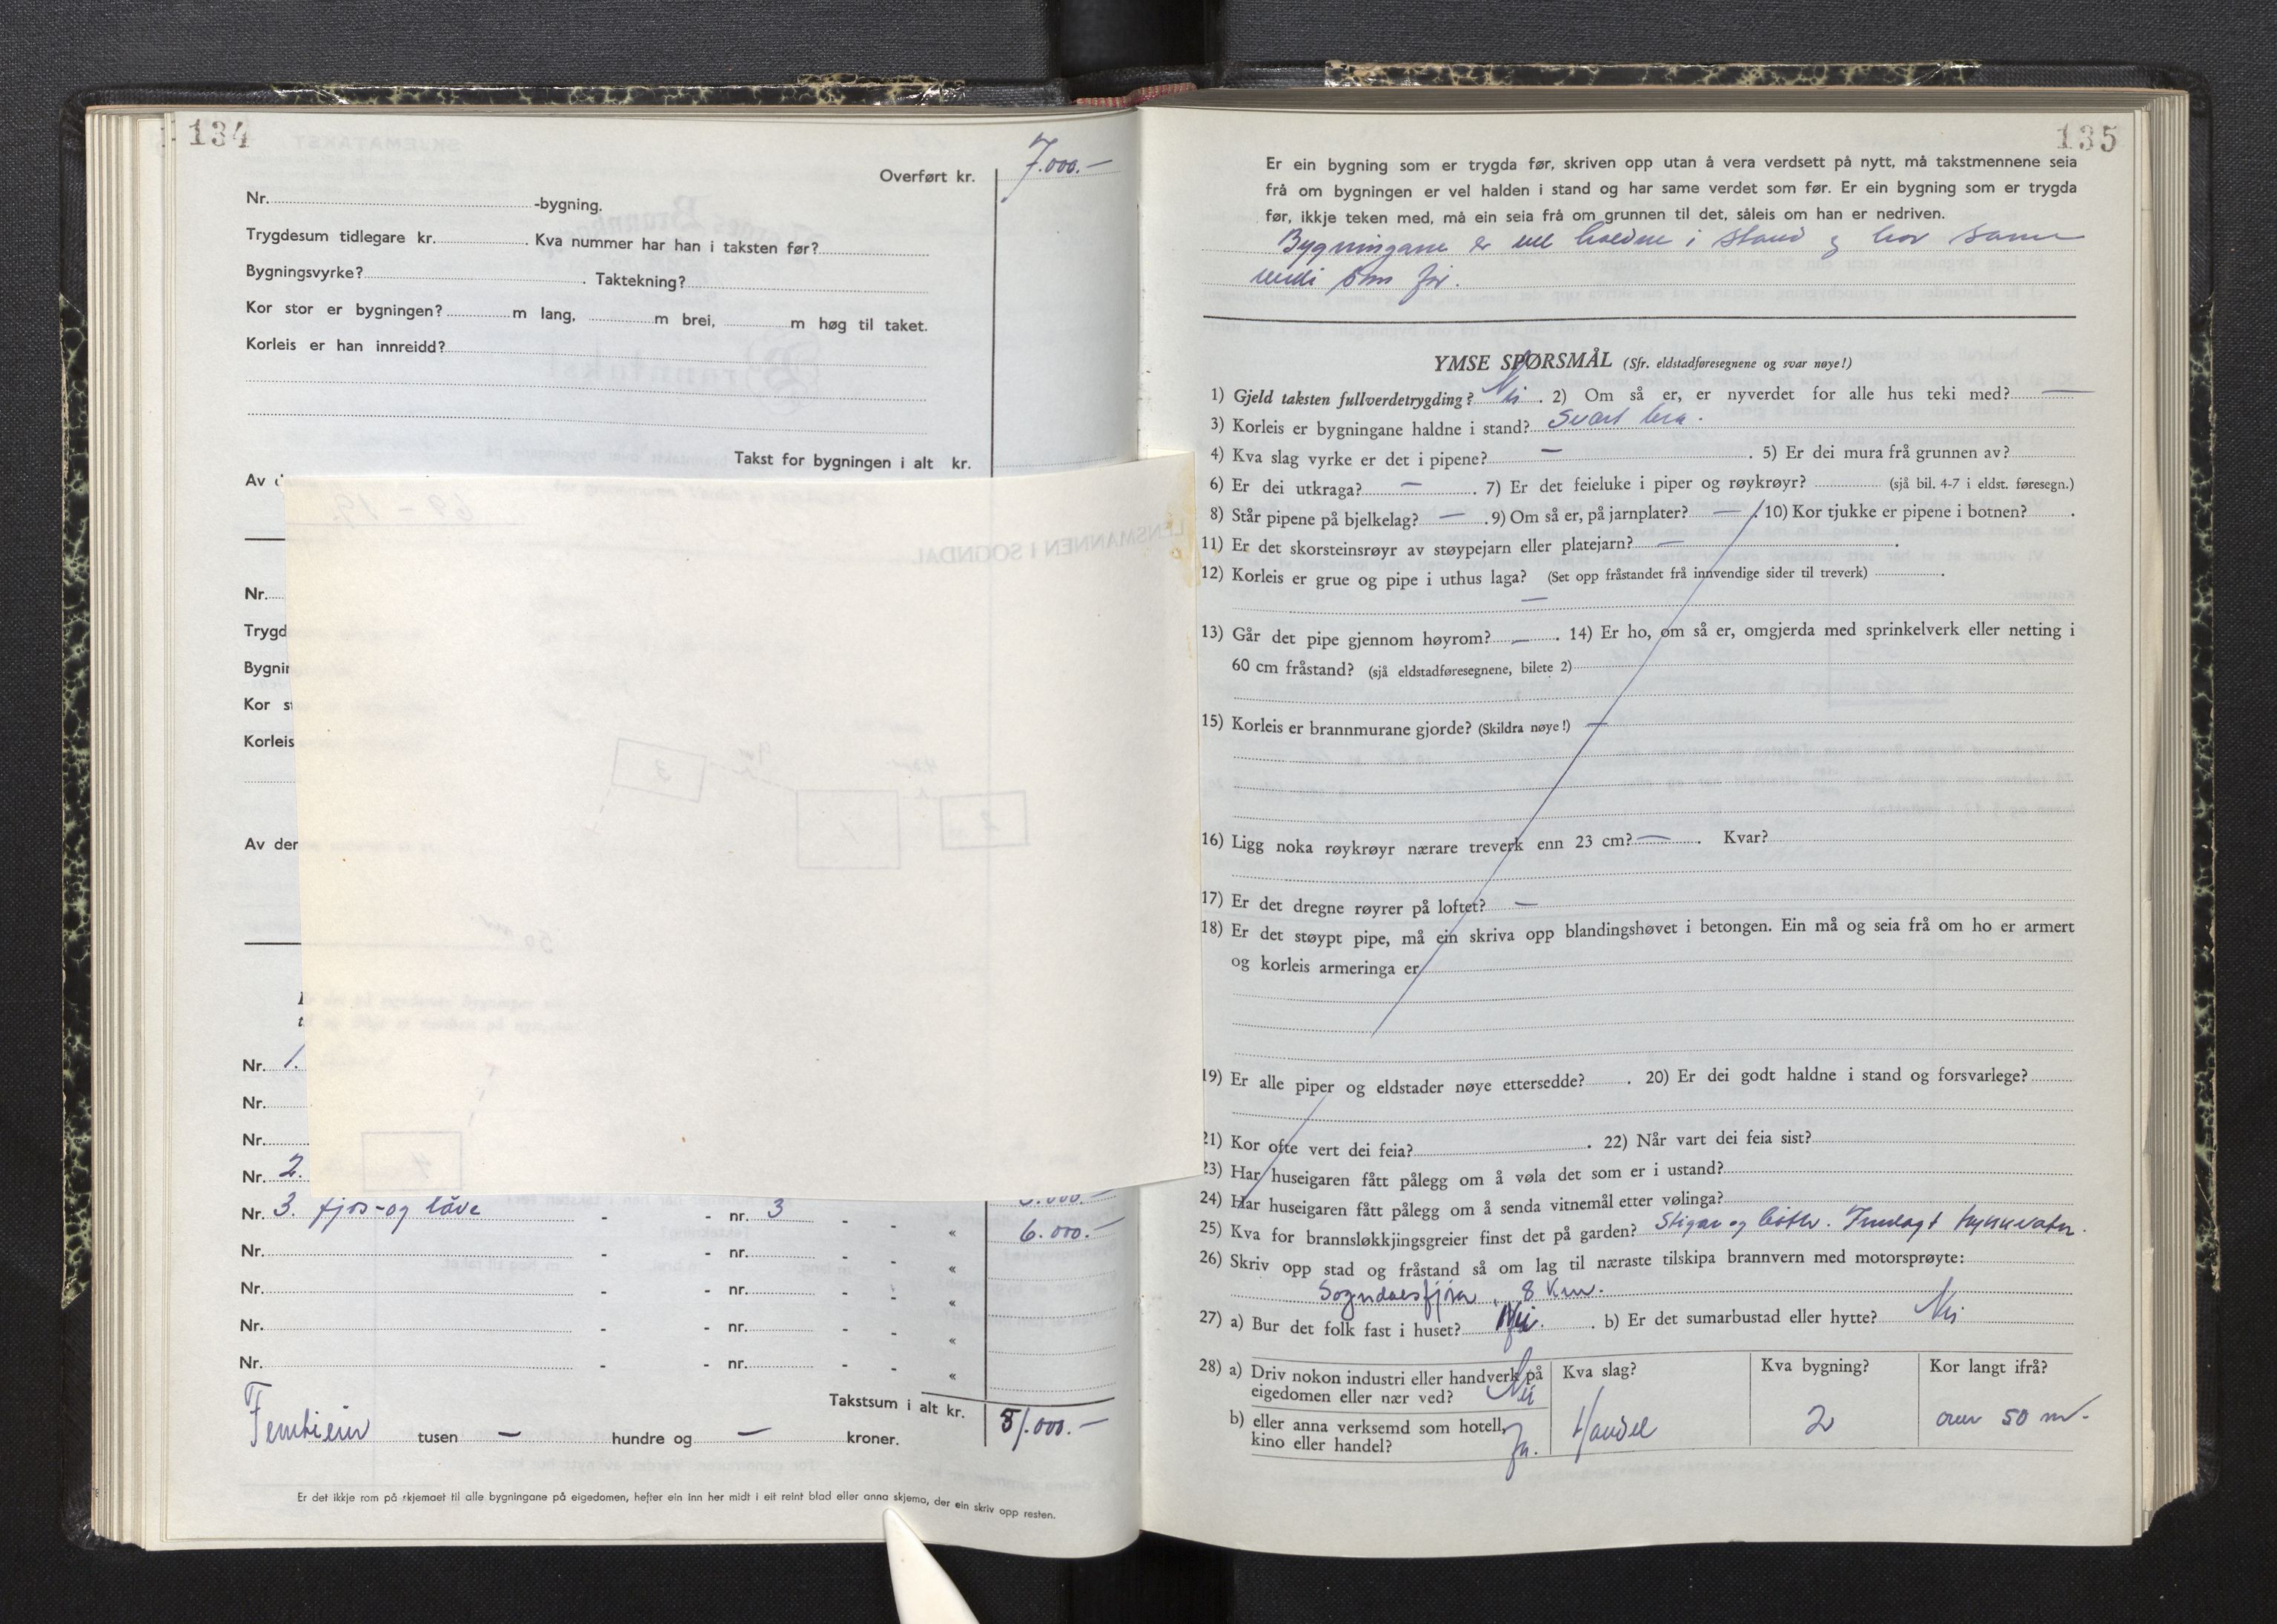 134
Overført kr. 7.000.-
Nr. -bygning.
Trygdesum tidlegare kr. . Kva nummer har han i taksten før?
Bygningsvyrke? . Taktekning?
Kor stor er bygningen? m lang, m brei, m høg til taket.
Korleis er han innreidd?
Takst for bygningen i alt kr.
Av d
Nr.
Trygd
Bygnin
Kor s
Korleis
Av der
Nr. 1.
Nr.
Nr.
Nr. 2.
Nr. 3. fjos-og låve - - nr. 3 - - « 6.000.-
Nr. - - nr. - - «
Nr. - - nr. - - «
Nr. - - nr. - - «
Nr. - - nr. - - «
Takstsum i alt kr. 51.000.-
tusen — hundre og — kroner.
Er det ikkje rom på skjemaet til alle bygningane på eigedomen, hefter ein inn her midt i eit reint blad eller anna skjema, der ein skriv opp resten.
LENSMANNEN I SOGNDAL
69 - 19
3
2
50 m
4
135
Er ein bygning som er trygda før, skriven opp utan å vera verdsett på nytt, må takstmennene seia
frå om bygningen er vel halden i stand og har same verdet som før. Er ein bygning som er trygda
før, ikkje teken med, må ein seia frå om grunnen til det, såleis om han er nedriven.
Bygningane er vel haldne i stand og har same
verdi som før.
YMSE SPØRSMÅL (Sfr. eldstadføresegnene og svar nøye!)
1) Gjeld taksten fullverdetrygding? Nei . 2) Om så er, er nyverdet for alle hus teki med? —
3) Korleis er bygningane haldne i stand? Svært bra.
4) Kva slag vyrke er det i pipene? — . 5) Er dei mura frå grunnen av?
6) Er dei utkraga? — . 7) Er det feieluke i piper og røykrøyr? (sjå bil. 4-7 i eldst. føresegn.)
8) Står pipene på bjelkelag? — . 9) Om så er, på jarnplater? — . 10) Kor tjukke er pipene i botnen? .
11) Er det skorsteinsrøyr av støypejarn eller platejarn? — .
12) Korleis er grue og pipe i uthus laga? (Set opp fråstandet frå innvendige sider til treverk) .
—
13) Går det pipe gjennom høyrom? — . 14) Er ho, om så er, omgjerda med sprinkelverk eller netting i
60 cm fråstand? (sjå eldstadføresegnene, bilete 2)
15) Korleis er brannmurane gjorde? (Skildra nøye!) —
16) Ligg noka røykrøyr nærare treverk enn 23 cm? — . Kvar?
17) Er det dregne røyrer på loftet? —
18) Er det støypt pipe, må ein skriva opp blandingshøvet i betongen. Ein må og seia frå om ho er armert
og korleis armeringa er
19) Er alle piper og eldstader nøye ettersedde? . 20) Er dei godt haldne i stand og forsvarlege?
21) Kor ofte vert dei feia? . 22) Når vart dei feia sist?
23) Har huseigaren fått pålegg om å vøla det som er i ustand?
24) Har huseigaren fått pålegg om å senda vitnemål etter vølinga?
25) Kva for brannsløkkjingsgreier finst det på garden? Stigar og bøtter. Innlagt
26) Skriv opp stad og fråstand så om lag til næraste tilskipa brannvern med motorsprøyte:
Sogndalsfjøra, 8 km.
27) a) Bur det folk fast i huset? Nei. . b) Er det sumarbustad eller hytte? Nei
28) a) Driv nokon industri eller handverk på
eigedomen eller nær ved? Nei
Kva slag? Kva bygning? Kor langt ifrå?
b) eller anna verksemd som hotell,
kino eller handel? Ja. Handel 2 over 50 m.